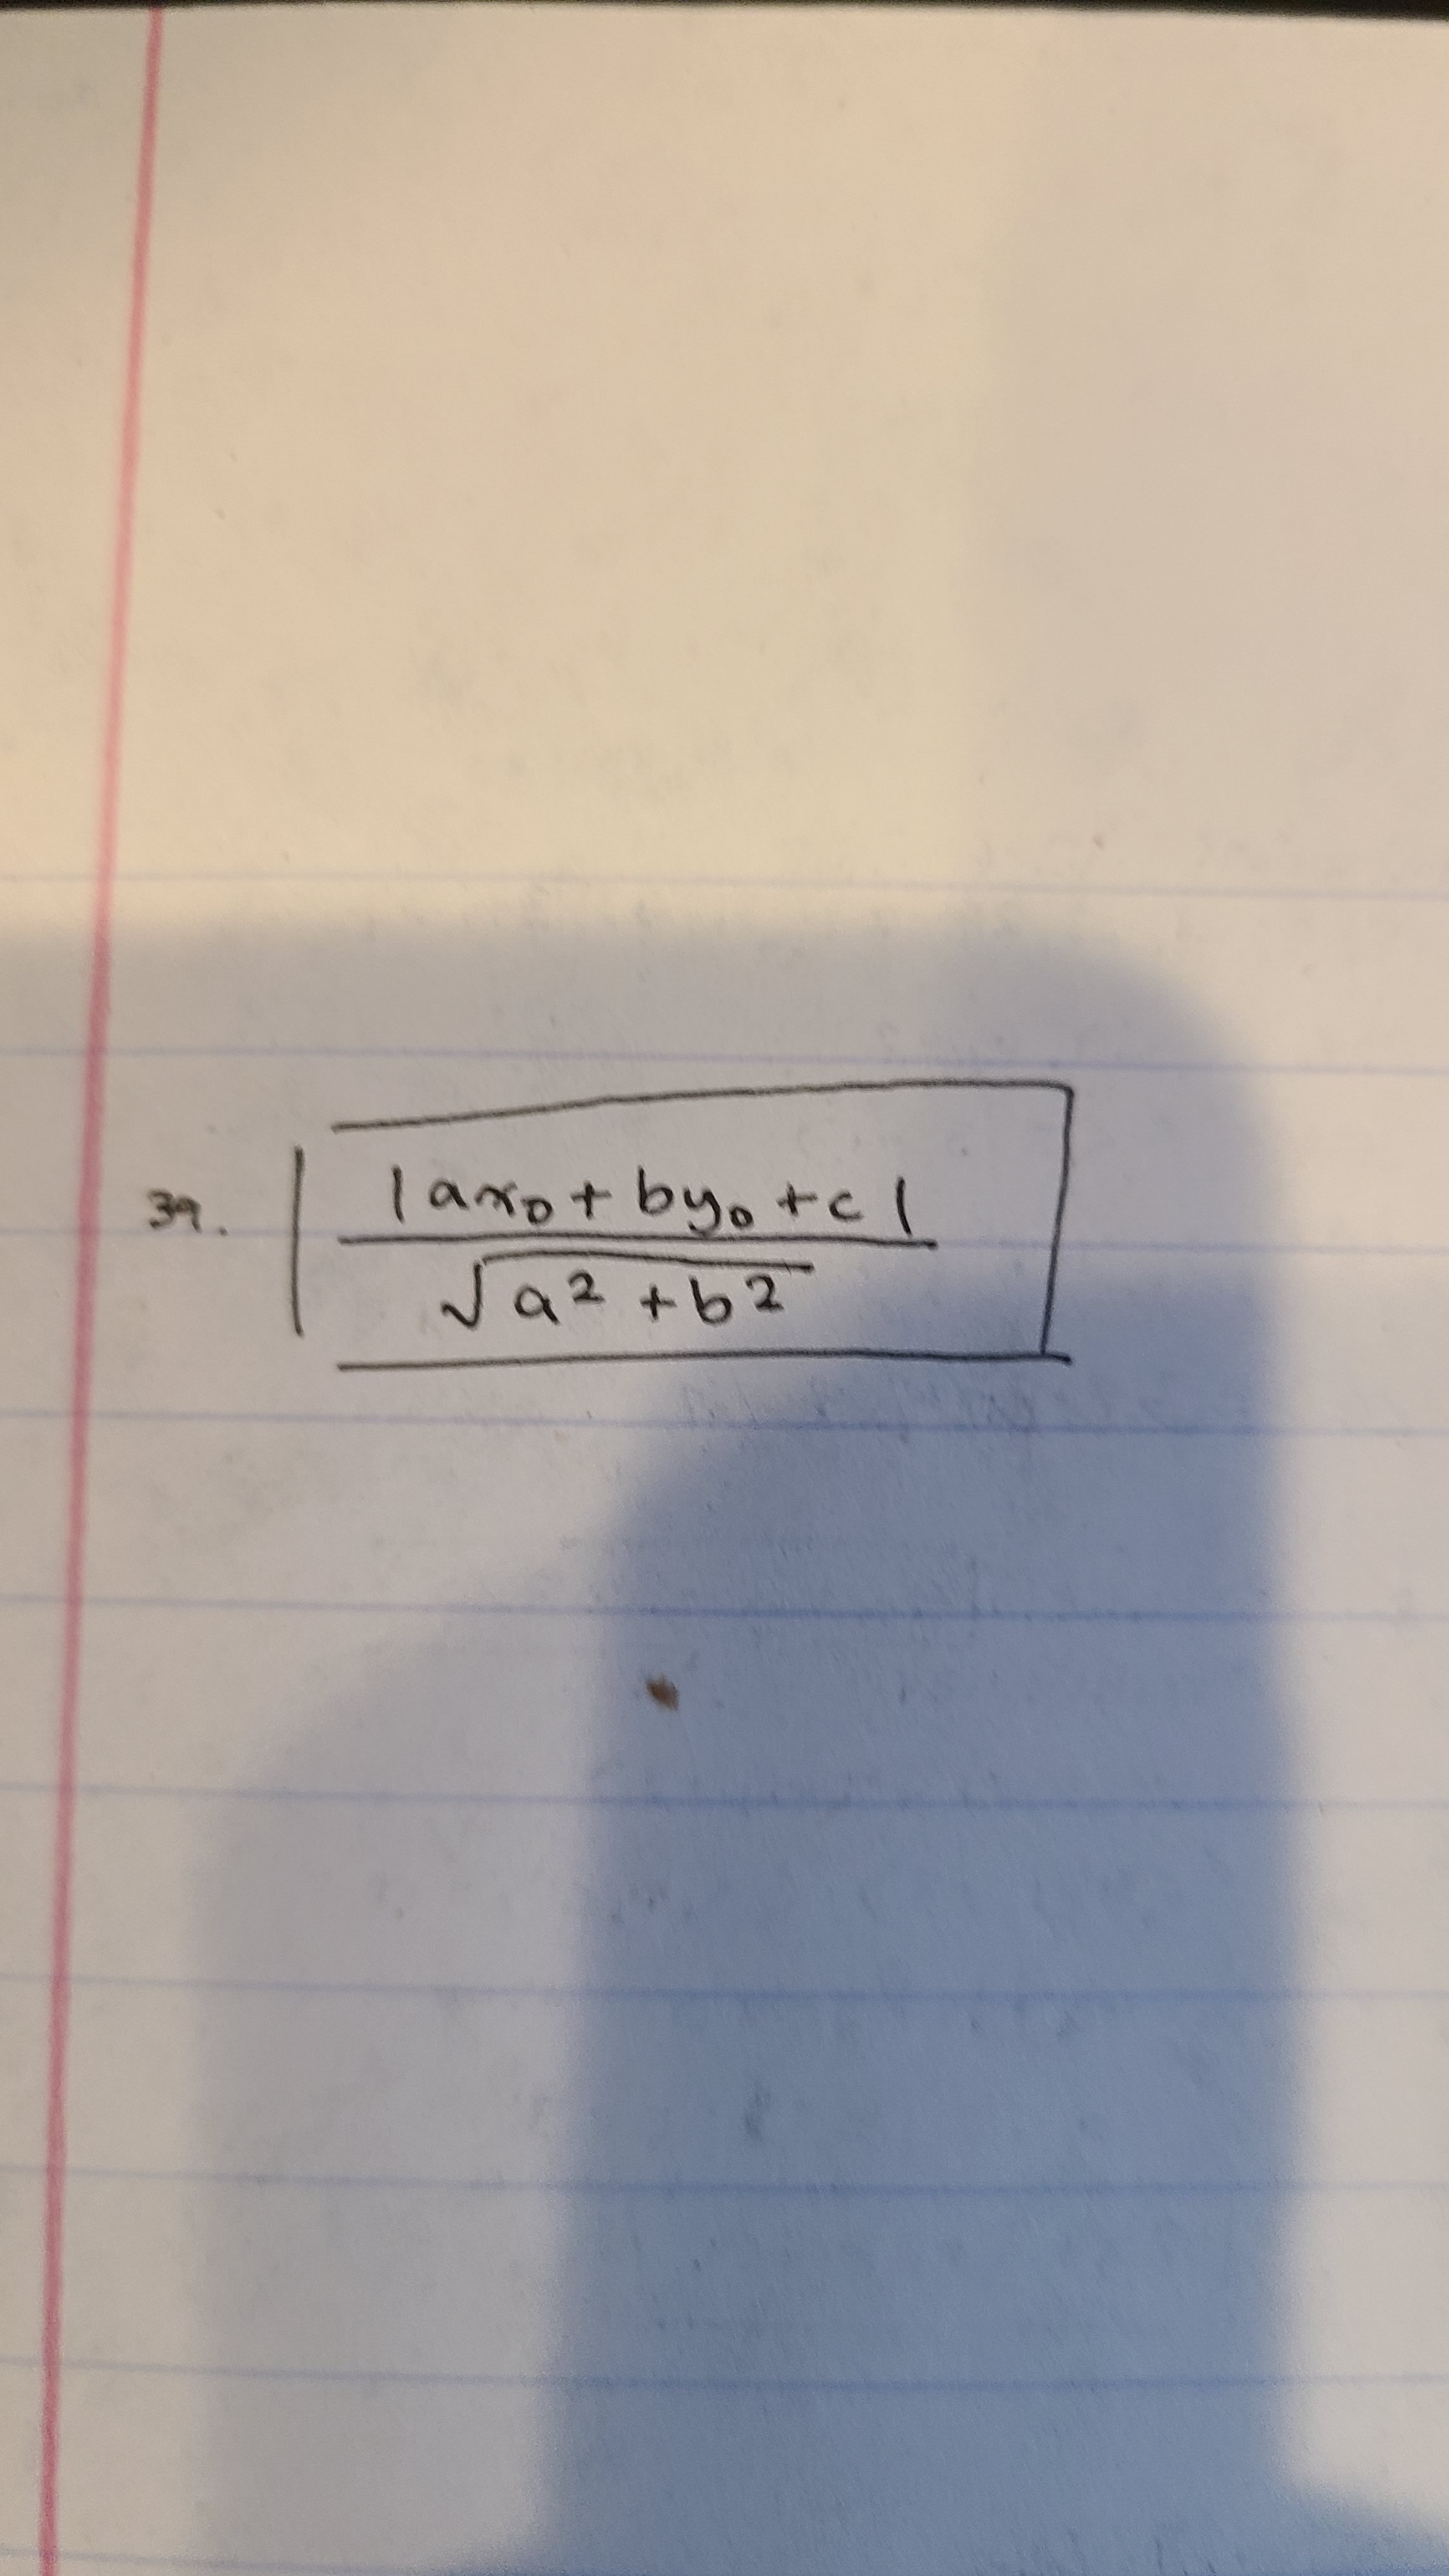 39. |ax₀ + by₀ + c|
√a² + b²